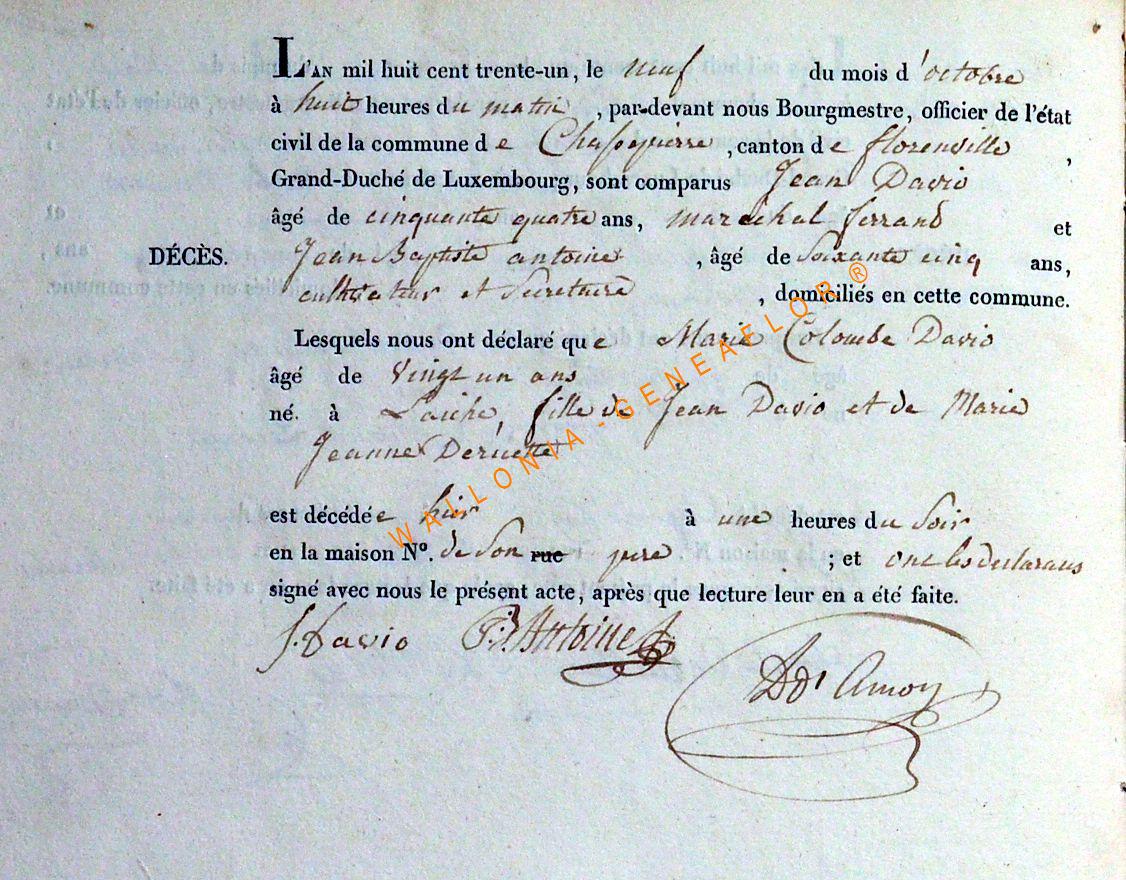 L'AN mil huit cent trente-un, le neuf du mois d'octobre
à huit heures du matin, par-devant nous Bourgmestre, officier de l'état
civil de la commune de Chassepierre, canton de florenville,
Grand-Duché de Luxembourg, sont comparus Jean Davio
âgé de cinquante quatre ans, marechal ferrand et
DÉCÈS. Jean Baptiste antoine, âgé de Soixante cinq ans,
cultivateur et Secretaire, domiciliés en cette commune.
Lesquels nous ont déclaré que Marie Colombe Davio
âgé de Vingt un ans
né. à Laiche, fille de Jean Davio et de Marie
Jeanne
est décédée hier à une heures du Soir
en la maison N°. de Son rue pere; et ont les declarans
signé avec nous le présent acte, après que lecture leur en a été faite.
J. Davio Antoine
Amon
WALLONIA-GENEAFLOR®